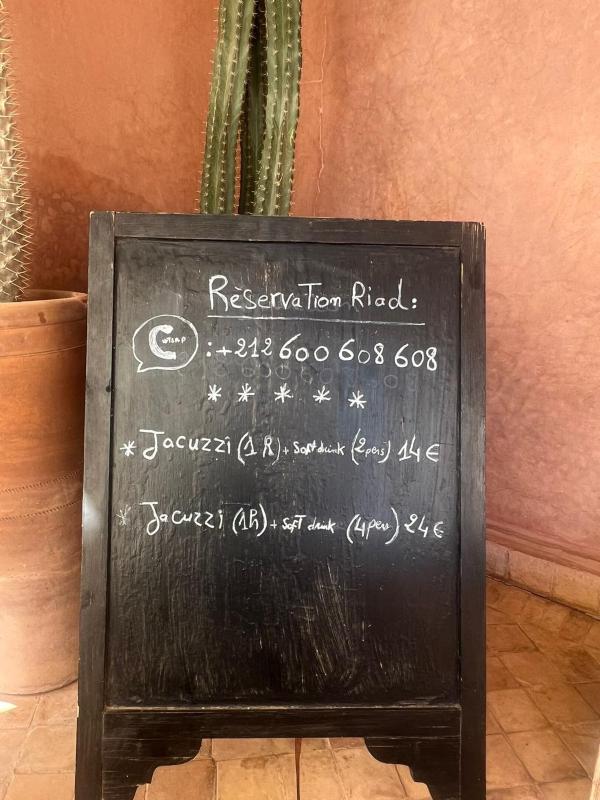 Réservation Riad:
:+212 600 608 608
* * * * *
* Jacuzzi (1 h) + Soft drink (2 pers) 14 €
* Jacuzzi (1h) + soft drink (4 pers) 24 €